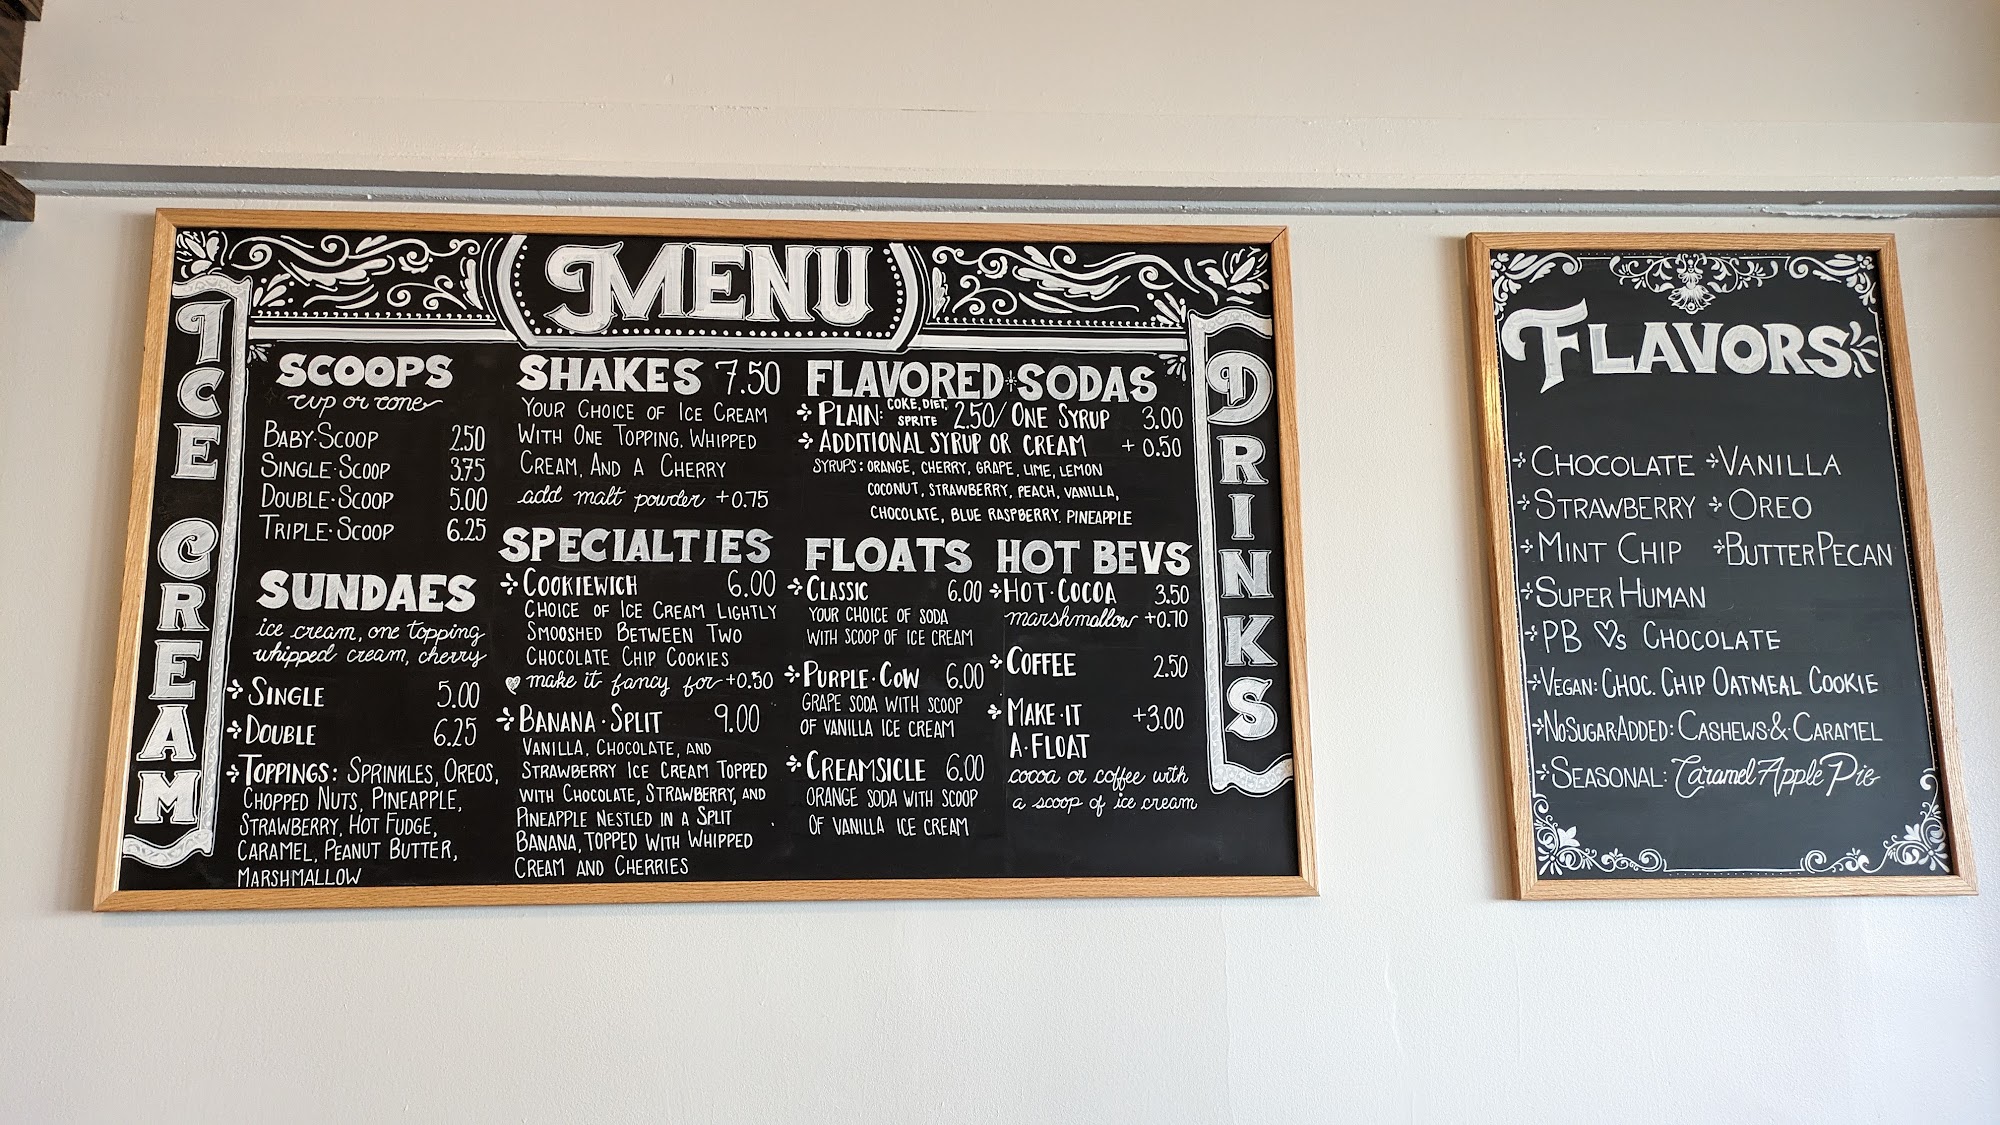 MENU
ICE CREAM
SCOOPS
cup or cone
BABY·SCOOP 2.50
SINGLE·SCOOP 3.75
DOUBLE·SCOOP 5.00
TRIPLE·SCOOP 6.25
SUNDAES
ice cream, one topping
whipped cream, cherry
SINGLE 5.00
DOUBLE 6.25
TOPPINGS: SPRINKLES, OREOS,
CHOPPED NUTS, PINEAPPLE,
STRAWBERRY, HOT FUDGE,
CARAMEL, PEANUT BUTTER,
MARSHMALLOW
SHAKES 7.50
YOUR CHOICE OF ICE CREAM
WITH ONE TOPPING, WHIPPED
CREAM, AND A CHERRY
add malt powder +0.75
SPECIALTIES
COOKIEWICH 6.00
CHOICE OF ICE CREAM LIGHTLY
SMOOSHED BETWEEN TWO
CHOCOLATE CHIP COOKIES
make it fancy for +0.50
BANANA·SPLIT 9.00
VANILLA, CHOCOLATE, AND
STRAWBERRY ICE CREAM TOPPED
WITH CHOCOLATE, STRAWBERRY, AND
PINEAPPLE NESTLED IN A SPLIT
BANANA, TOPPED WITH WHIPPED
CREAM AND CHERRIES
DRINKS
FLAVORED SODAS
PLAIN: COKE, DIET, SPRITE 2.50/ ONE SYRUP 3.00
ADDITIONAL SYRUP OR CREAM + 0.50
SYRUPS: ORANGE, CHERRY, GRAPE, LIME, LEMON
COCONUT, STRAWBERRY, PEACH, VANILLA,
CHOCOLATE, BLUE RASPBERRY, PINEAPPLE
FLOATS
CLASSIC 6.00
YOUR CHOICE OF SODA
WITH SCOOP OF ICE CREAM
PURPLE·COW 6.00
GRAPE SODA WITH SCOOP
OF VANILLA ICE CREAM
CREAMSICLE 6.00
ORANGE SODA WITH SCOOP
OF VANILLA ICE CREAM
HOT BEVS
HOT·COCOA 3.50
marshmallow +0.70
COFFEE 2.50
MAKE·IT +3.00
A·FLOAT
cocoa or coffee with
a scoop of ice cream
FLAVORS
CHOCOLATE VANILLA
STRAWBERRY OREO
MINT CHIP BUTTER PECAN
SUPER HUMAN
PB ♡s CHOCOLATE
VEGAN: CHOC. CHIP OATMEAL COOKIE
NO·SUGAR·ADDED: CASHEWS & CARAMEL
SEASONAL: Caramel Apple Pie